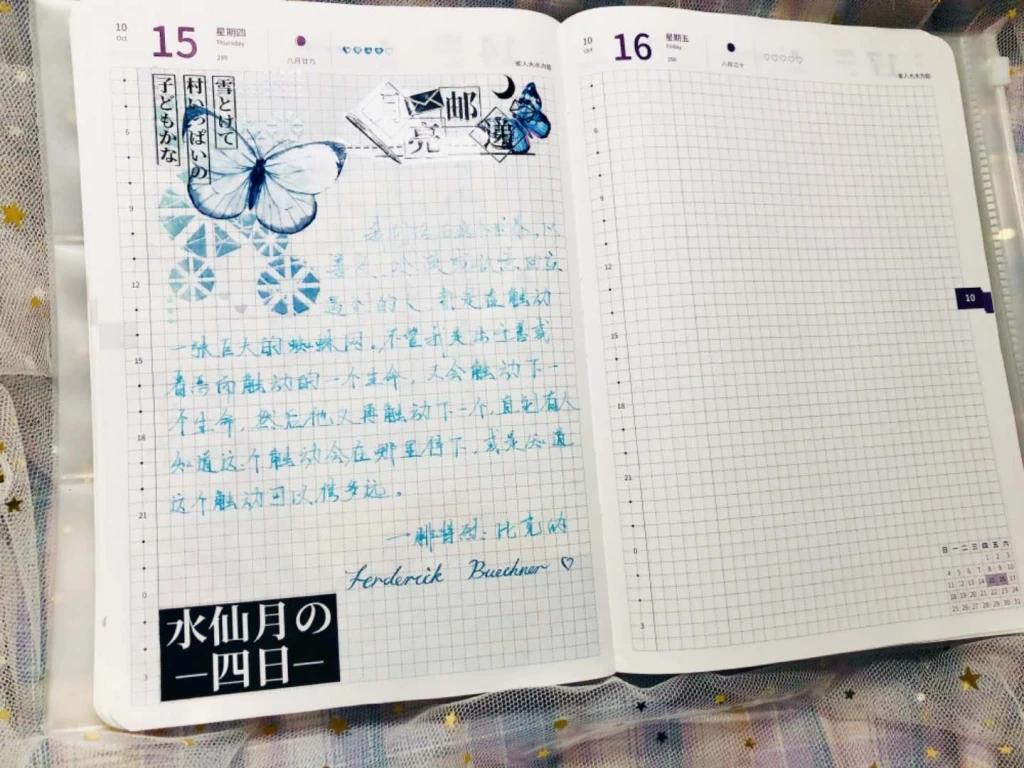 10
Oct
15
星期四
Thursday
289
八月廿九
雪とけて
村いっぱいの
子どもかな
月
邮
亮
递
遇到的人,我是在触动
一张巨大的蜘蛛网。不管我是出于善或
着恶而触动的一个生命,又会触动下一
个生命,然后他又再触动下一个,直到有人
知道这个触动会在哪里停下,或是知道
这个触动可以传多远。
一弗特烈·比克纳
Ferderick Buechner ♡
水仙月の
—四日—
6
9
12
15
18
21
0
3
10
Oct
16
星期五
Friday
290
八月三十
6
9
12
15
18
21
0
3
10
日 一 二 三 四 五 六
1 2 3
4 5 6 7 8 9 10
11 12 13 14 15 16 17
18 19 20 21 22 23 24
25 26 27 28 29 30 31